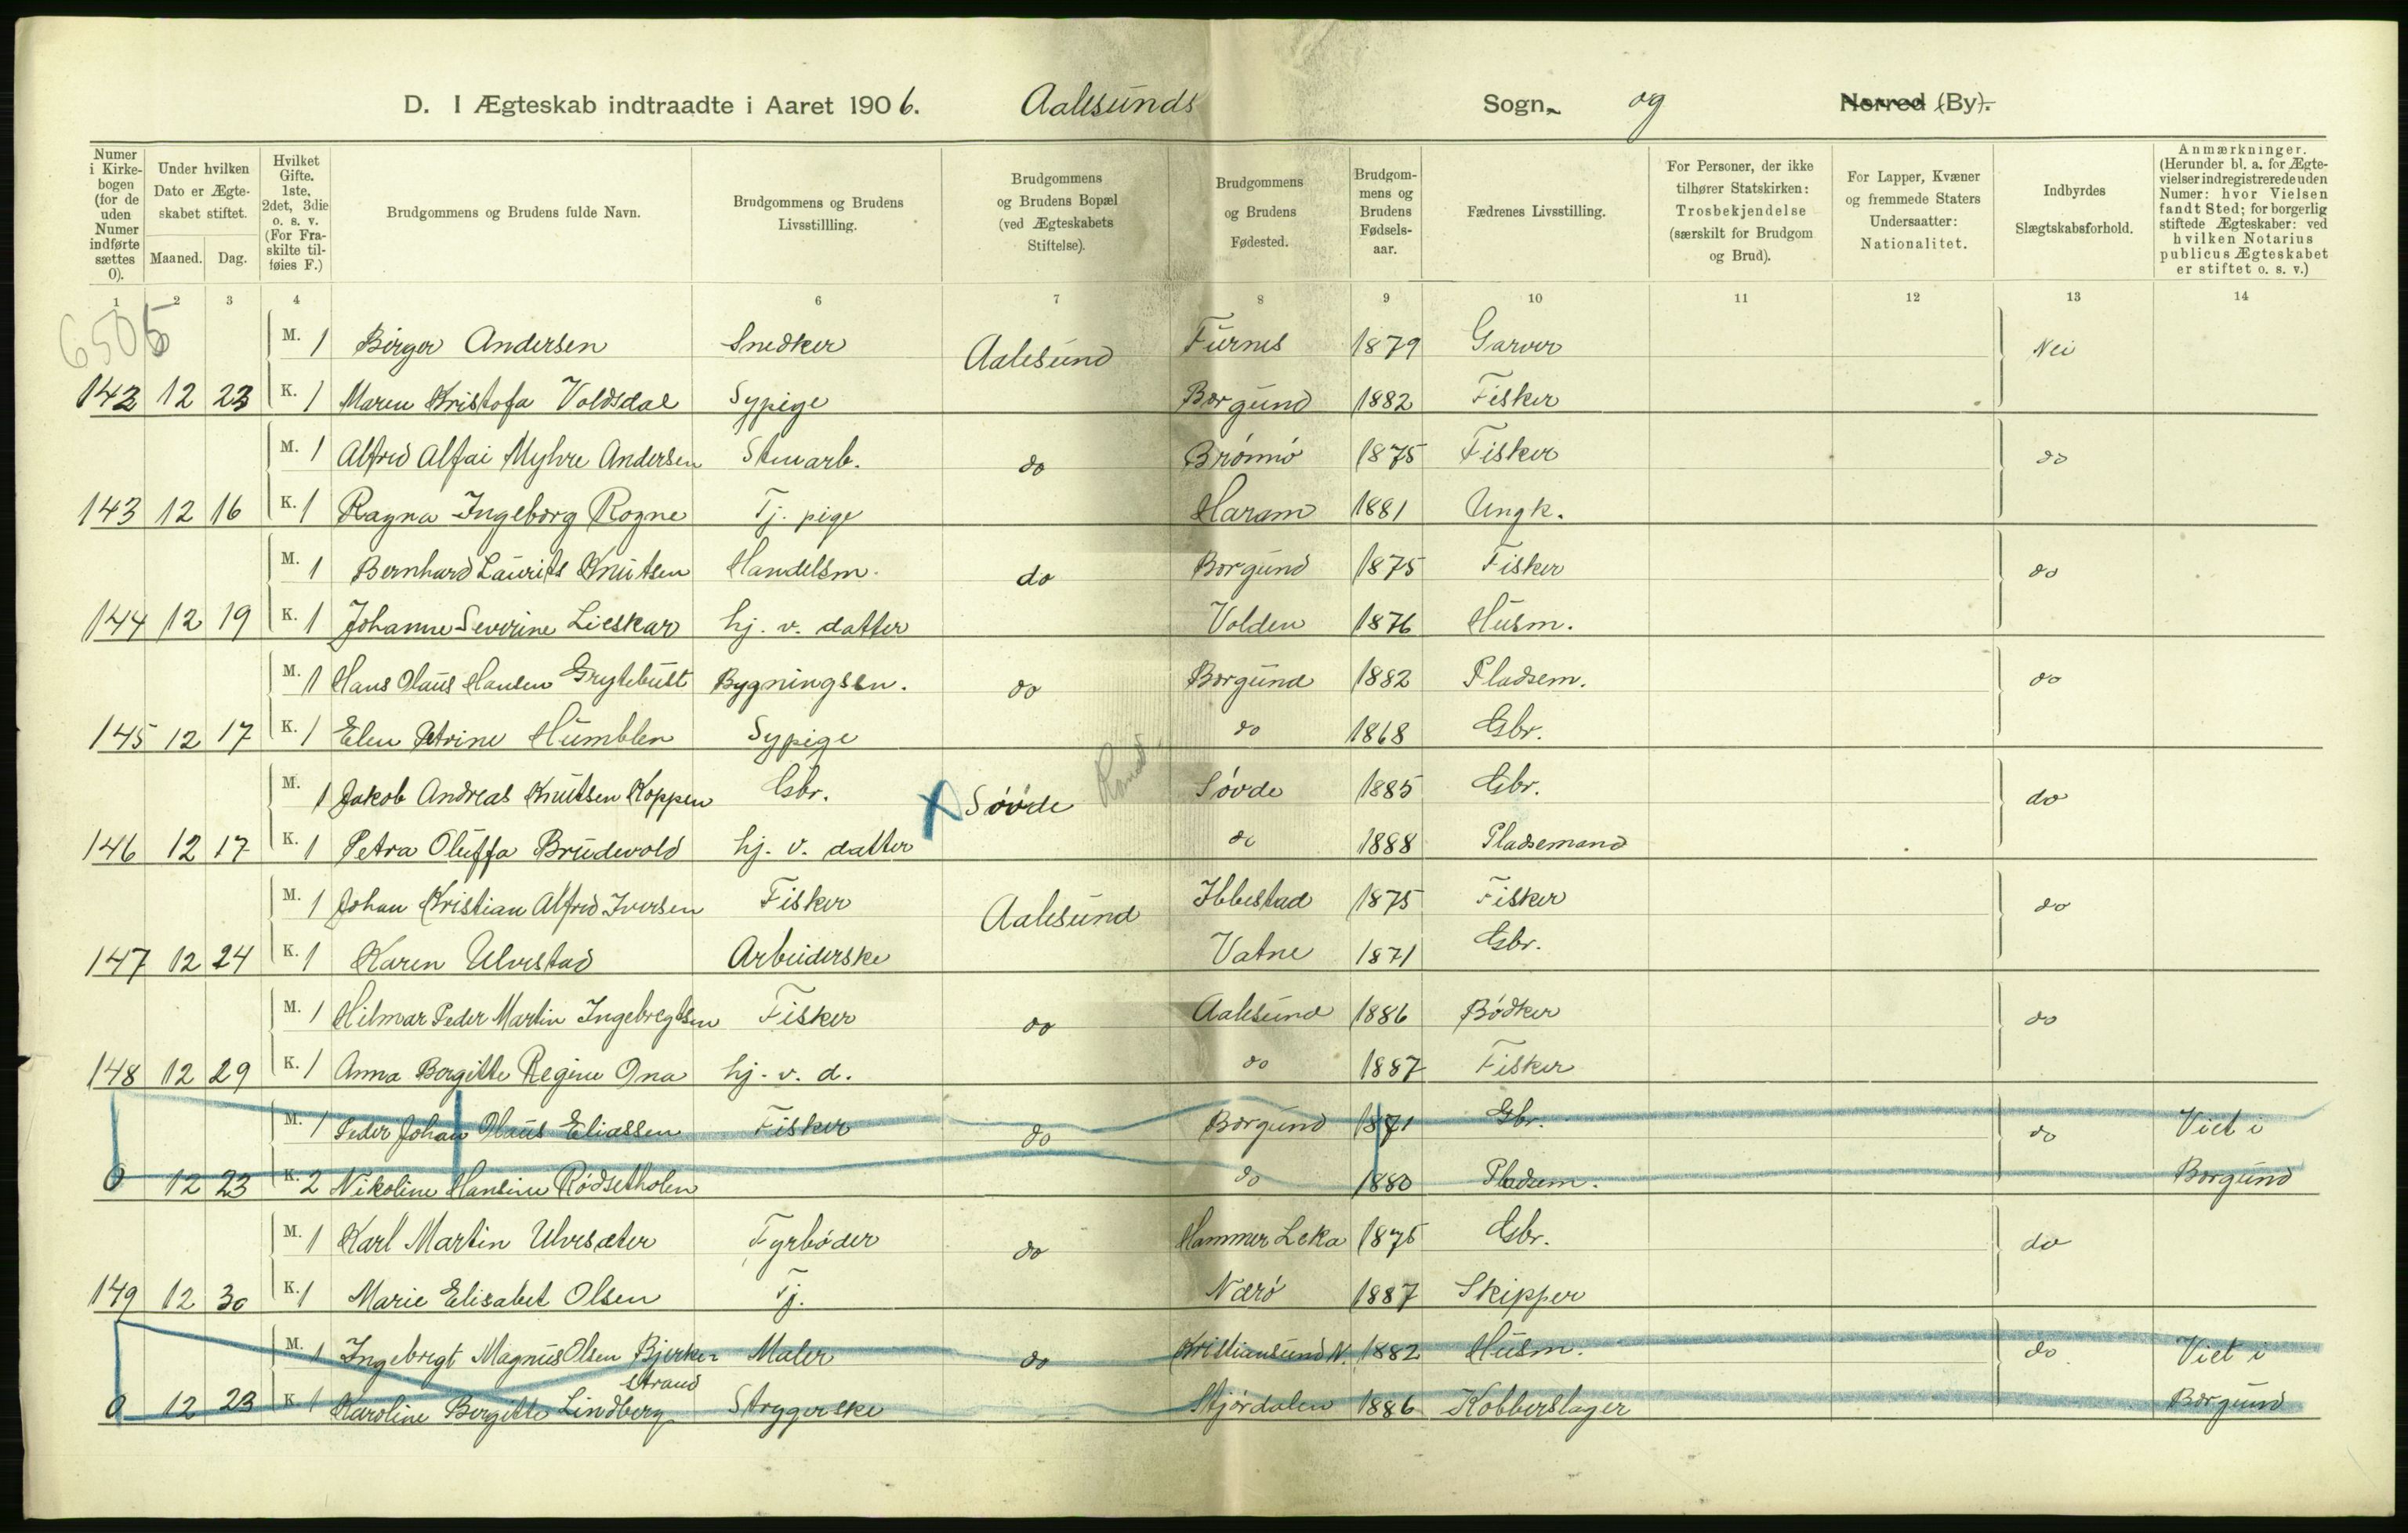 D. I Ægteskab indtraadte i Aaret 1906. Aalesunds Sogn og Herred (By).
Numer i Kirkebogen (for de uden Numer indførte sættes 0).
Under hvilken Dato er Ægteskabet stiftet.
Maaned. Dag.
Hvilket Gifte. 1ste, 2det, 3die o. s. v. (For Fraskilte tilføies F.)
Brudgommens og Brudens fulde Navn.
Brudgommens og Brudens Livsstillling.
Brudgommens og Brudens Bopæl (ved Ægteskabets Stiftelse).
Brudgommens og Brudens Fødested.
Brudgommens og Brudens Fødselsaar.
Fædrenes Livsstilling.
For Personer, der ikke tilhører Statskirken: Trosbekjendelse (særskilt for Brudgom og Brud).
For Lapper, Kvæner og fremmede Staters Undersaatter: Nationalitet.
Indbyrdes Slægtskabsforhold.
Anmærkninger. (Herunder bl. a. for Ægtevielser indregistrerede uden Numer: hvor Vielsen fandt Sted; for borgerlig stiftede Ægteskaber: ved hvilken Notarius publicus Ægteskabet er stiftet o. s. v.)
1 2 3 4 6 7 8 9 10 11 12 13 14
6505
M. 1 Birger Andersen Snedker Aalesund Furnes 1879 Garver Nei
142 12 23 K. 1 Maren Kristofa Voldsdal Sypige Borgund 1882 Fisker
M. 1 Alfred Alfai Myhre Andersen Stenarb. do Brønnø 1875 Fisker do
143 12 16 K. 1 Ragna Ingeborg Rogne Tj. pige Haram 1881 Ungk.
M. 1 Bernhard Laurits Knutsen Handelsm. do Borgund 1875 Fisker do
144 12 19 K. 1 Johanne Severine Lieskar hj. v. datter Volden 1876 Husm.
M. 1 Hans Olaus Hansen Grytebust Bygningssn. do Borgund 1882 Pladsem. do
145 12 17 K. 1 Elen Petrine Humblen Sypige do 1868 Gbr.
M. 1 Jakob Andreas Knutsen Koppen Gbr. X Søvde Søvde 1885 Gbr. do
146 12 17 K. 1 Petra Oluffa Brudevold hj. v. datter do 1888 Pladsemand
M. 1 Johan Kristian Alfred Iversen Fisker Aalesund Ibbestad 1875 Fisker do
147 12 24 K. 1 Karen Ulvestad Arbeiderske Vatne 1871 Gbr.
M. 1 Hilmar Peder Martin Ingebregtsen Fisker do Aalesund 1886 Bødker do
148 12 29 K. 1 Anna Bergitte Regine Ona hj. v. d. do 1887 Fisker
M. 1 Peder Johan Olaus Eliassen Fisker do Borgund 1871 Gbr. do Viet i
0 12 23 K. 2 Nikoline Hansine Rødsetholen do 1880 Pladsem. Borgund
M. 1 Karl Martin Ulvsæter Fyrbøder do Hammer Leka 1875 Gbr. do
149 12 30 K. 1 Marie Elisabet Olsen Tj. Nærø 1887 Skipper
M. 1 Ingebregt Magnus Olsen Bjerkestrand Maler do Kristiansund N. 1882 Husm. do Viet i
0 12 23 K. 1 Karoline Bergitte Lindberg Strygerske Stjørdalen 1886 Kobberslager Borgund